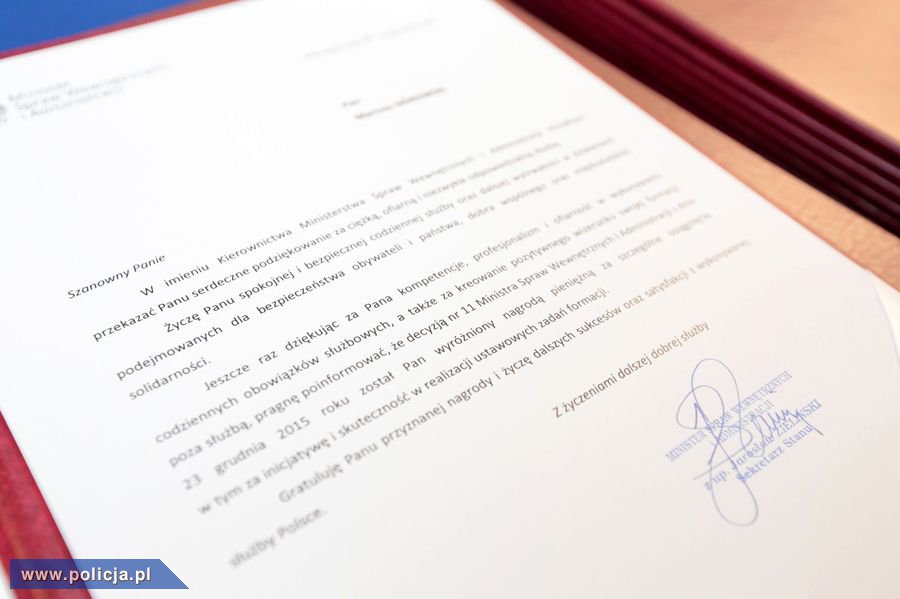 Minister
Spraw Wewnętrznych
i Administracji
Pan
Szanowny Panie
W imieniu Kierownictwa Ministerstwa Spraw Wewnętrznych i Administracji
przekazać Panu serdeczne podziękowanie za ciężką, ofiarną i niezwykle odpowiedzialną służbę.
Życzę Panu spokojnej i bezpiecznej codziennej służby oraz dalszej wytrwałości w działaniach
podejmowanych dla bezpieczeństwa obywateli i państwa, dobra wspólnego oraz międzyludzkiej
solidarności.
Jeszcze raz dziękując za Pana kompetencje, profesjonalizm i ofiarność w wykonywaniu
codziennych obowiązków służbowych, a także za kreowanie pozytywnego wizerunku swojej formacji
poza służbą, pragnę poinformować, że decyzją nr 11 Ministra Spraw Wewnętrznych i Administracji z dnia
23 grudnia 2015 roku został Pan wyróżniony nagrodą pieniężną za szczególne osiągnięcia,
w tym za inicjatywę i skuteczność w realizacji ustawowych zadań formacji.
Gratuluję Panu przyznanej nagrody i życzę dalszych sukcesów oraz satysfakcji z wykonywanej
służby Polsce.
Z życzeniami dalszej dobrej służby
MINISTER SPRAW WEWNĘTRZNYCH
I ADMINISTRACJI
z up. Jarosław ZIELIŃSKI
Sekretarz Stanu
www.policja.pl